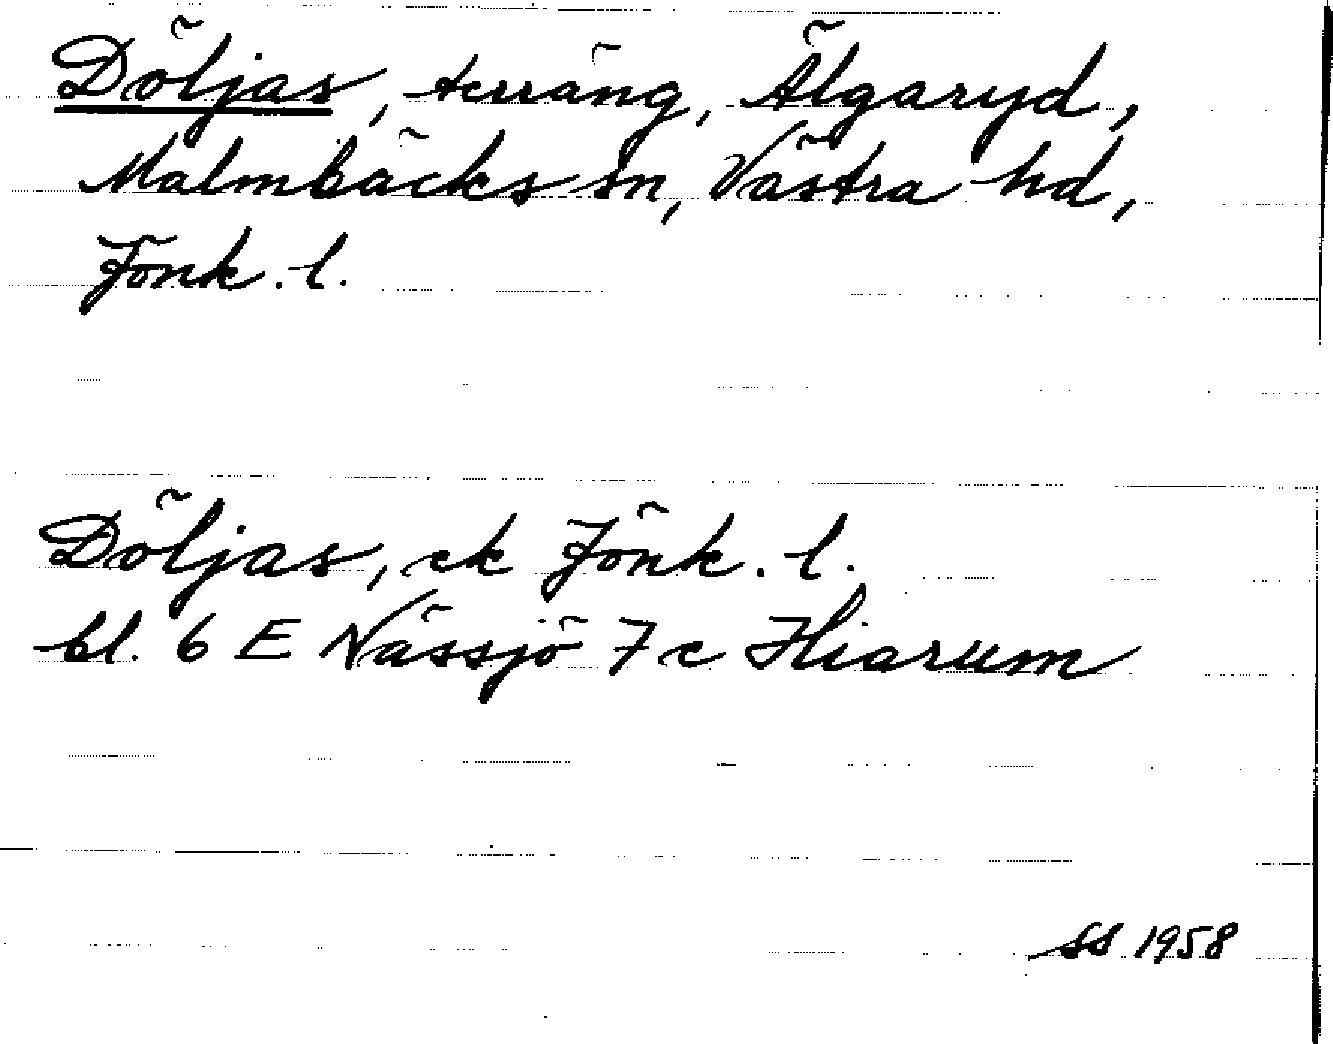 Döljas, terräng, Älgaryd,
Malmbäcks sn, Västra hd,
Jönk. l.
Döljas, ek Jönk. l.
bl. 6 E Nässjö 7 c Hiarum
SS 1958